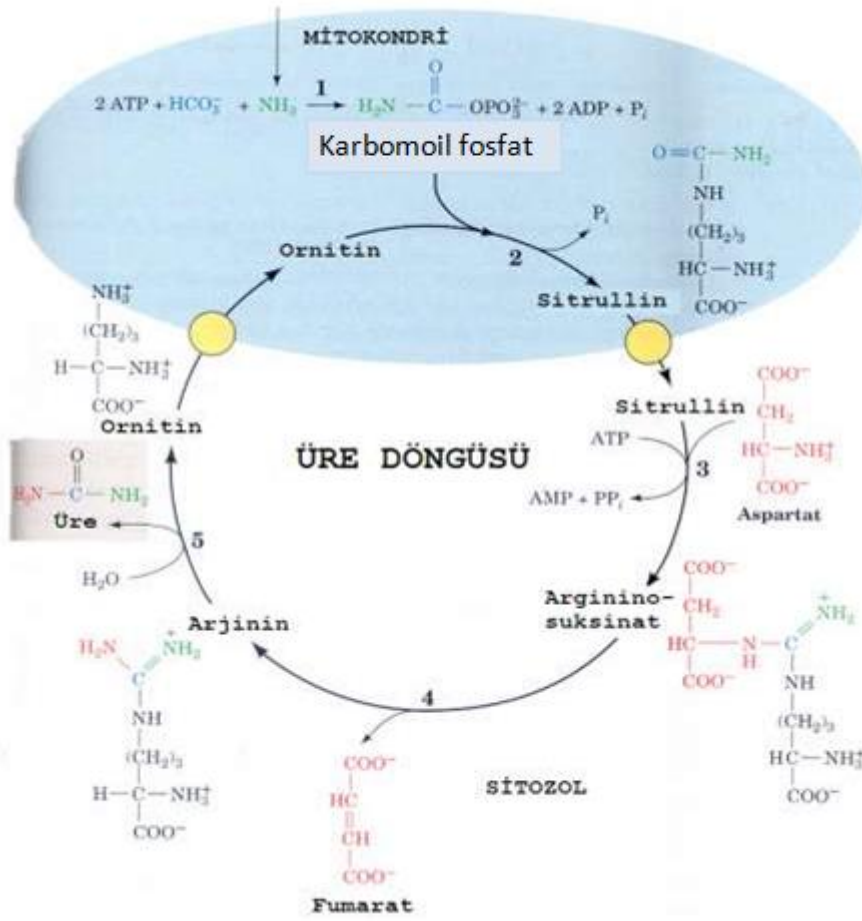 MİTOKONDRİ
O
2 ATP + HCO₃⁻ + NH₃ 1 H₂N — C — OPO₃²⁻ + 2 ADP + Pᵢ
Karbomoil fosfat
O=C—NH₂
NH
(CH₂)₃
HC—NH₃⁺
COO⁻
Pᵢ
Ornitin
2
Sitrullin
NH₃⁺
(CH₂)₃
H—C—NH₃⁺
COO⁻
Ornitin
Sitrullin
ATP
3
AMP + PPᵢ
COO⁻
CH₂
HC—NH₃⁺
COO⁻
Aspartat
ÜRE DÖNGÜSÜ
O
H₂N—C—NH₂
Üre
5
H₂O
Arjinin
Arginino-
suksinat
COO⁻
CH₂
HC—N—C
H
COO⁻
NH₂
+
NH
(CH₂)₃
HC—NH₃⁺
COO⁻
H₂N
NH₂
+
C
NH
(CH₂)₃
H—C—NH₃⁺
COO⁻
4
COO⁻
HC
CH
COO⁻
Fumarat
SİTOZOL